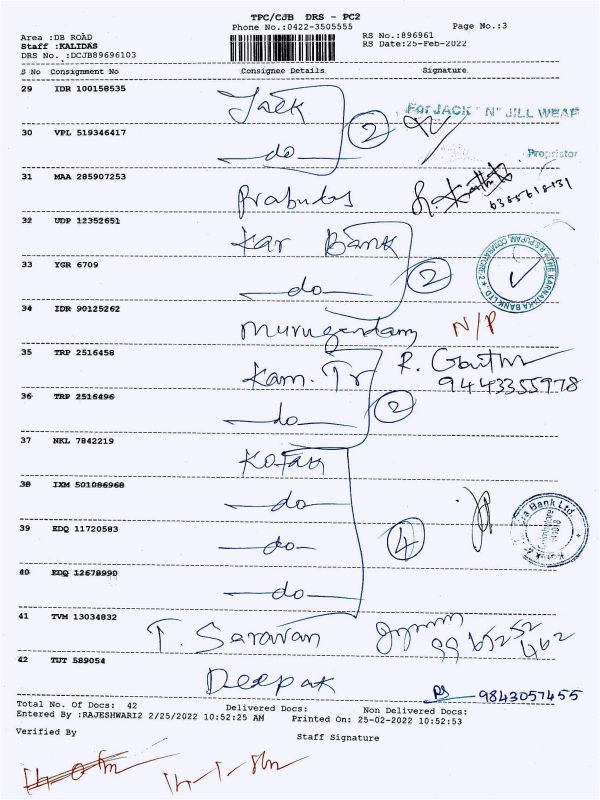 TPC/CJB DRS - PC2
Phone No.:0422-3505555 Page No.:3
Area :DB ROAD RS No.:896961
Staff :KALIDAS RS Date:25-Feb-2022
DRS No. :DCJB89696103
S No Consignment No Consignee Details Signature
29 IDR 100158535 Jack
For JACK "N" JILL WEAR
30 VPL 519346417 do 2
Proprietor
31 MAA 285907253 Prabudas
32 UDP 12352651 Kar Bank
33 YGR 6709 do 2
34 IDR 90125262 N/P
35 TRP 2516458 Kam. Tr R.
9443355978
36 TRP 2516496 do 2
37 NKL 7842219 Kotak
38 IXM 501086968 do
39 EDQ 11720583 do 4
40 EDQ 12678990 do
41 TVM 13034832 T. Saravan
42 TUT 589054 Deepak 9843057455
Total No. Of Docs: 42 Delivered Docs: Non Delivered Docs:
Entered By :RAJESHWARI2 2/25/2022 10:52:25 AM Printed On: 25-02-2022 10:52:53
Verified By Staff Signature